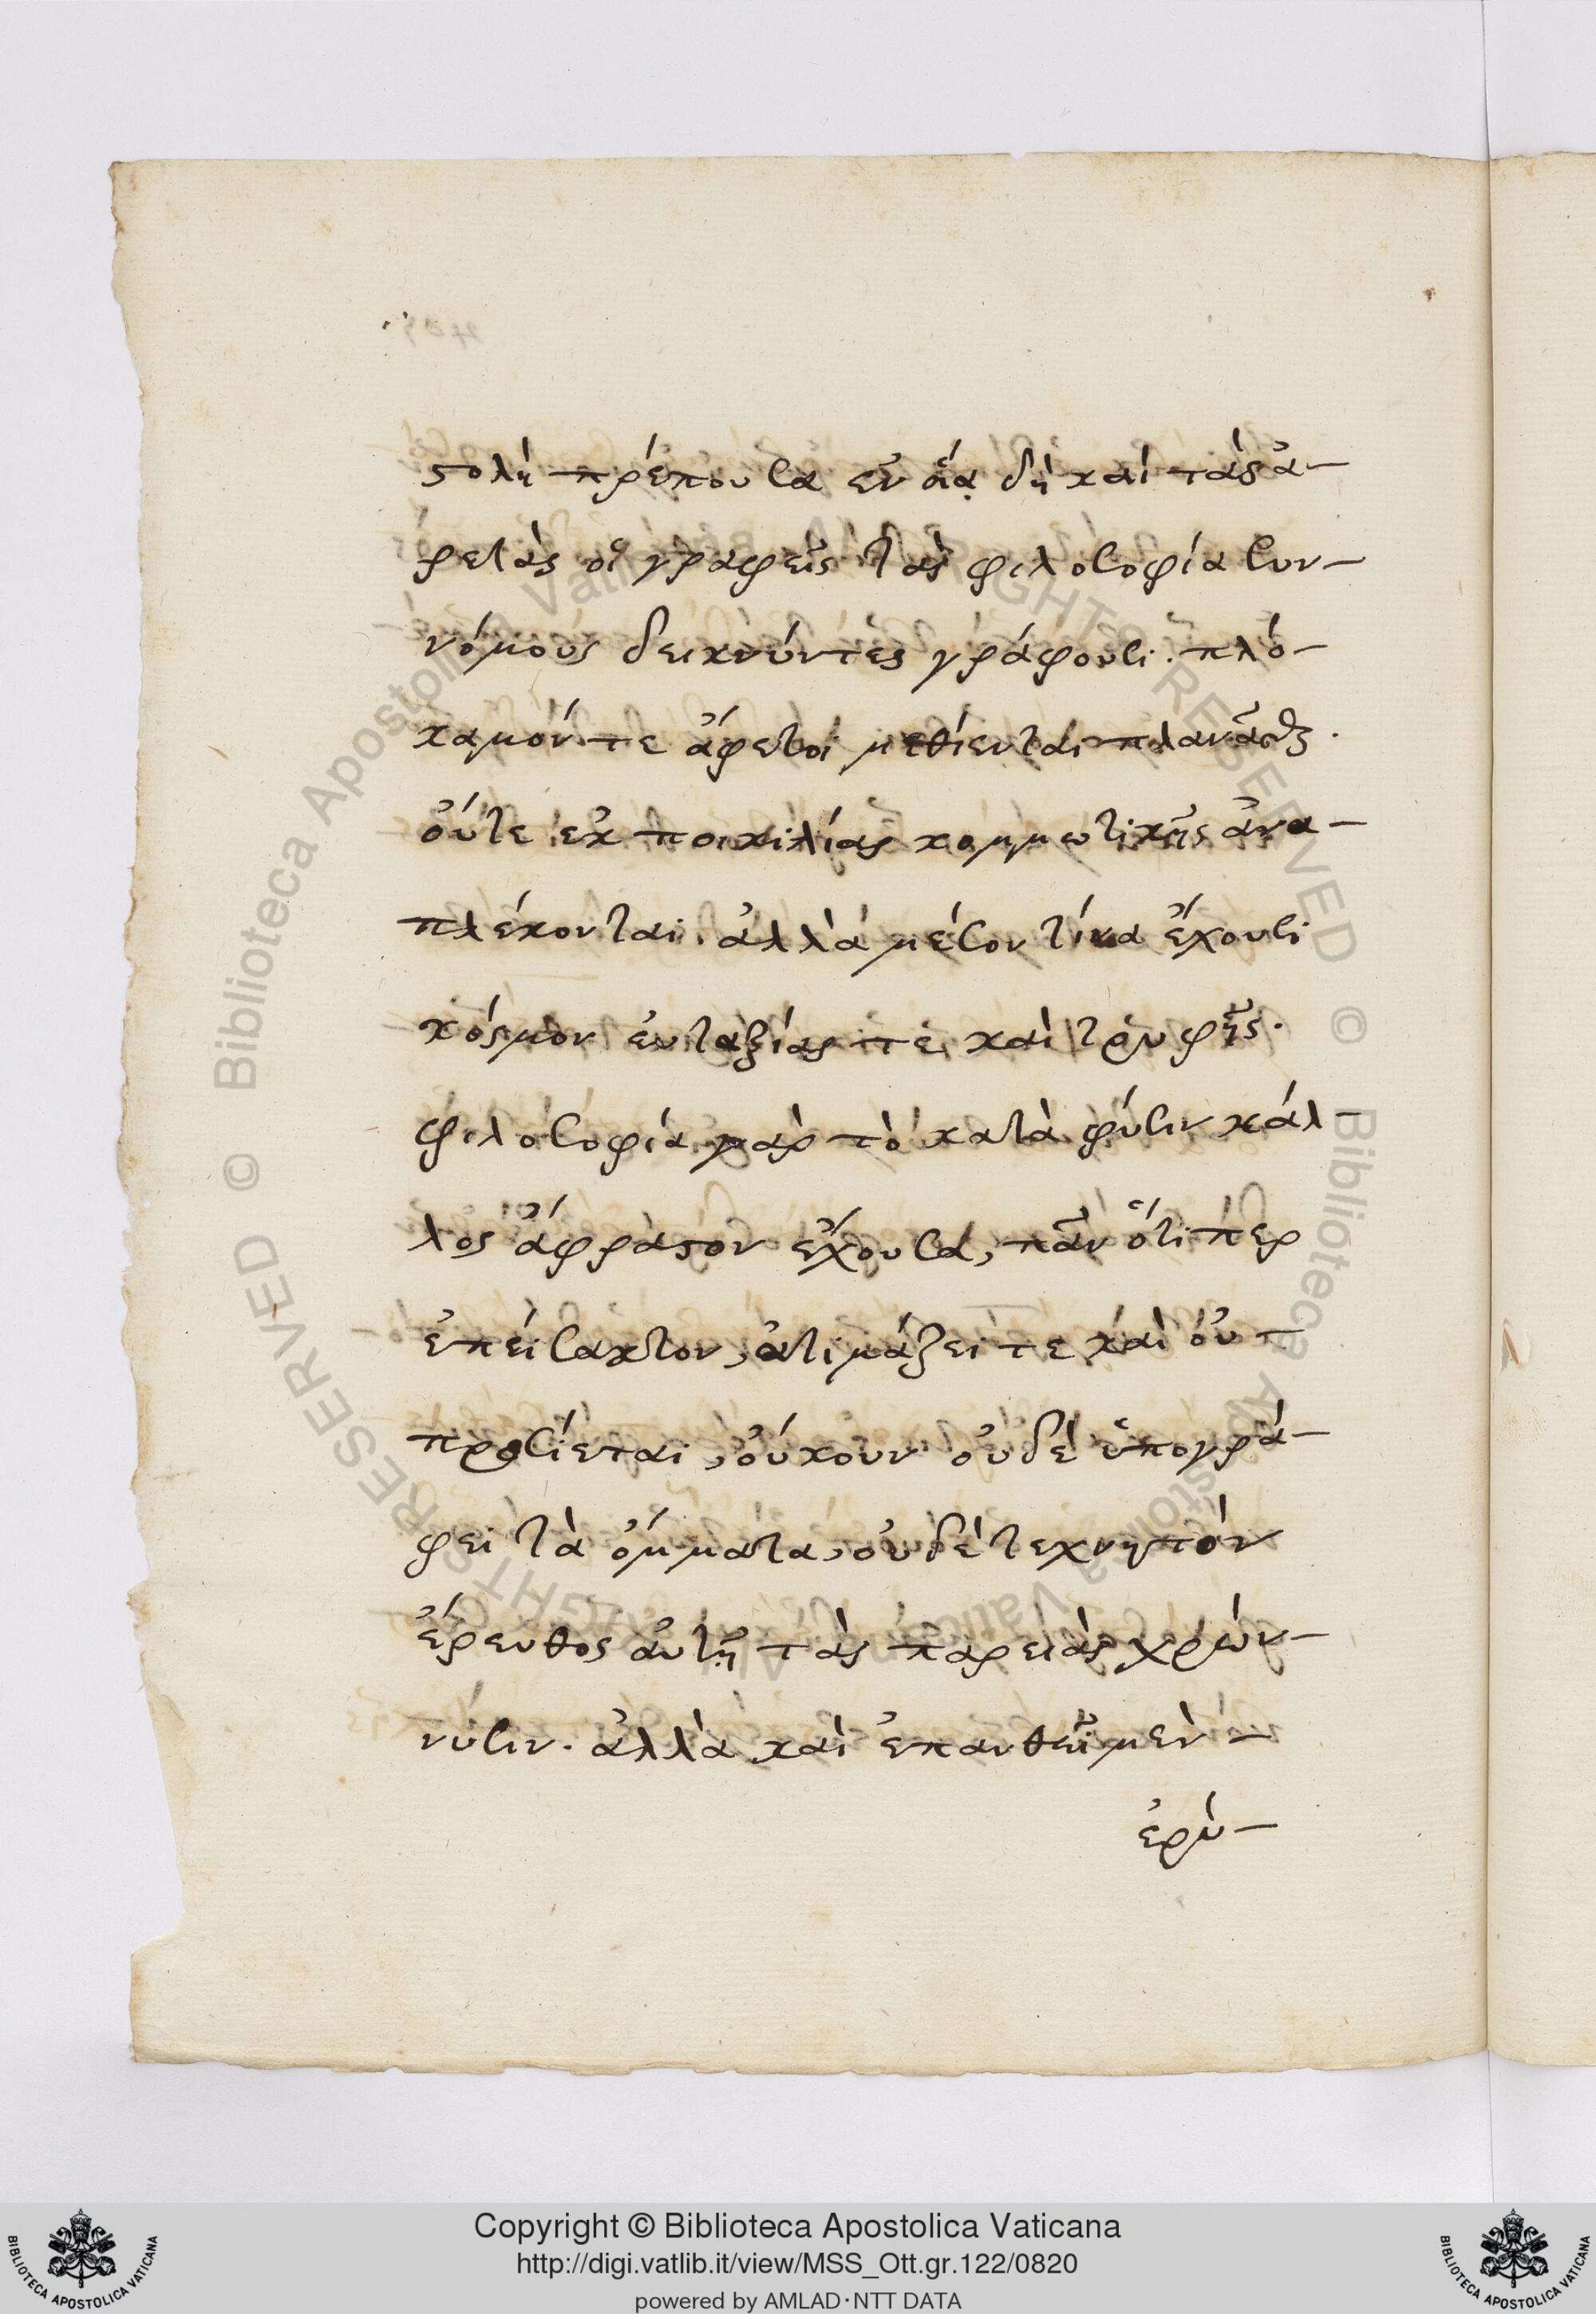 στολὴ πρέπουσα ἐν οἵᾳ δὴ καὶ τὰς ἀ-
ρετὰς οἱ γραφεῖς τὰς φιλοσοφία συν-
νόμους δεικνύντες γράφουσι. πλό-
καμόν τε ἄφετοι μεθίενται πλανᾶσθαι.
οὔτε ἐκ ποικιλίας κομμωτικῆς ἀνα-
πλέκονται. ἀλλὰ μέσον τινα ἔχουσι
κόσμον ἐυταξίας τε καὶ τρυφῆς.
φιλοσοφία γαρ τὸ κατὰ φύσιν κάλ-
λος ἄφραστον ἔχουσα, πᾶν ὅτι περ
ἐπείσακτον, ἀτιμάζει τε καὶ οὐ
προσίεται, οὔκουν οὐδὲ ὑπογρά-
φει τὰ ὄμματα, οὐδὲ τεχνητὸν
ἔρευθος ἀυτῇ τὰς παρειὰς χρών-
νυσιν. ἀλλὰ καὶ ἐπανθεῖ μὲν -
ἐρύ-
RESERVED © Biblioteca Apostolica Vaticana ALL RIGHTS RESERVED © Biblioteca Apostolica Vaticana ALL RIGHTS
BIBLIOTECA APOSTOLICA VATICANA
Copyright © Biblioteca Apostolica Vaticana
http://digi.vatlib.it/view/MSS_Ott.gr.122/0820
powered by AMLAD·NTT DATA
BIBLIOTECA APOSTOLICA VATICANA